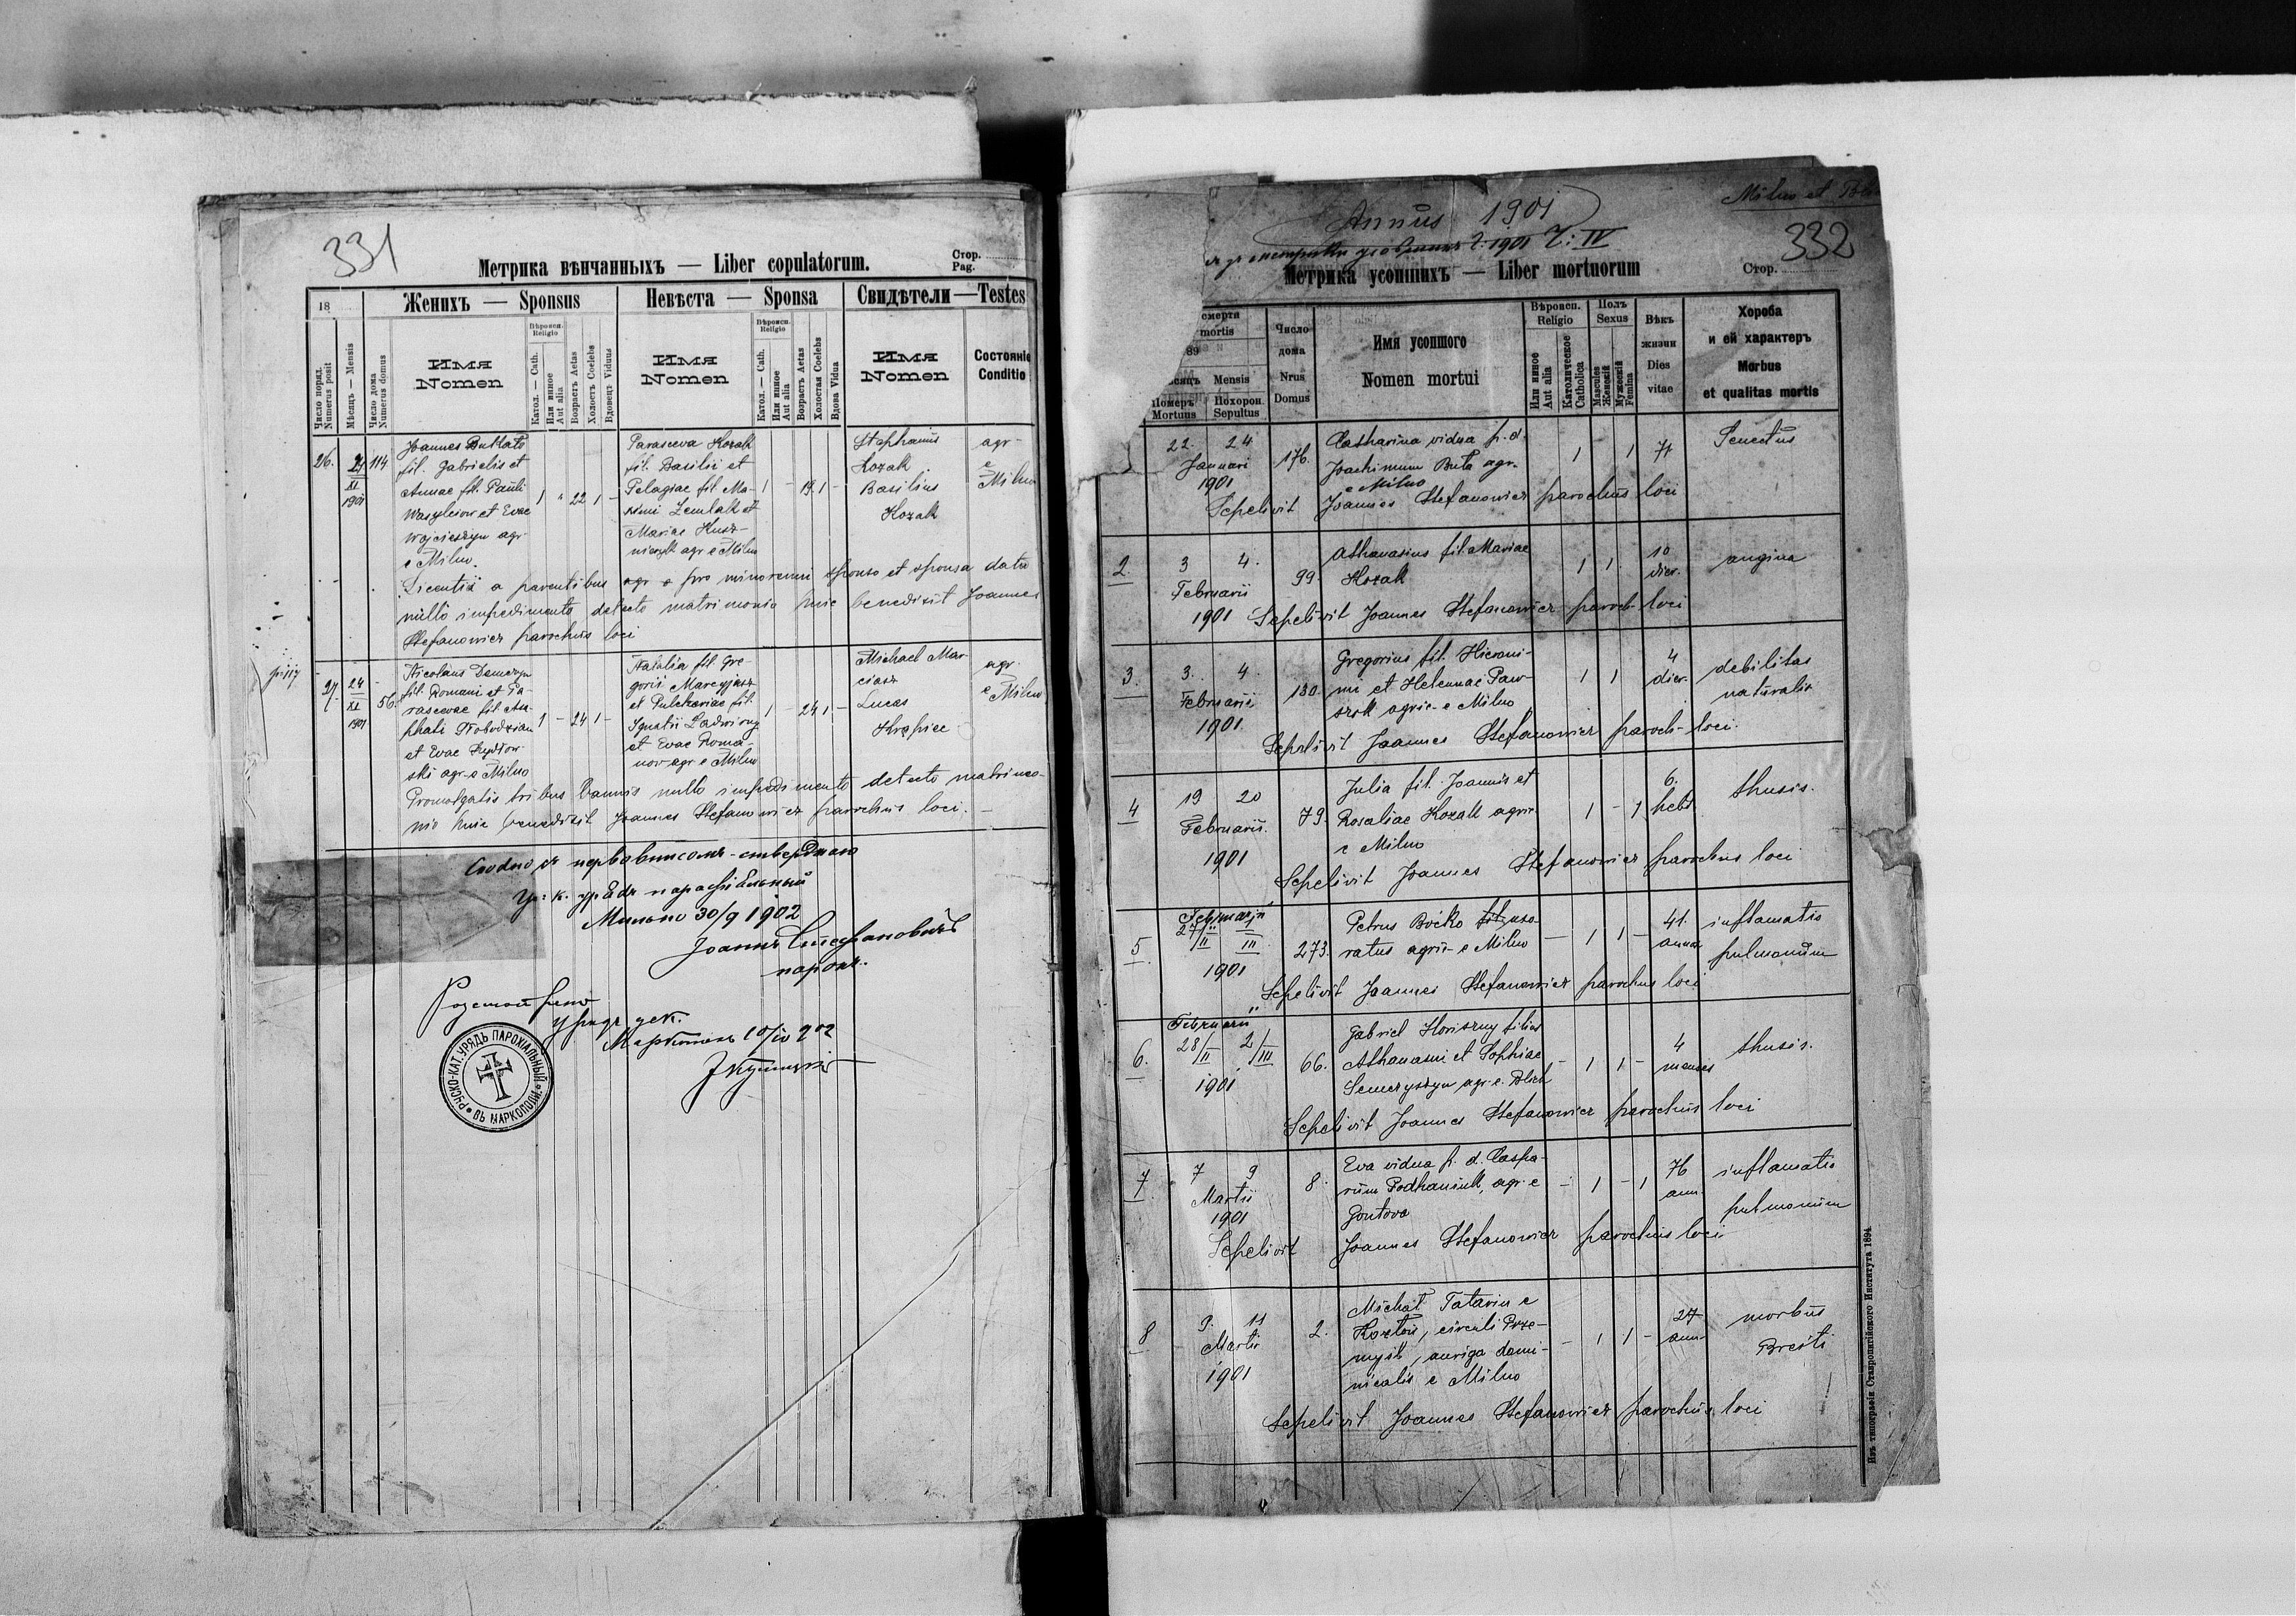 331
Метрика вѣнчанныхъ — Liber copulatorum.
Стор.
Pag.
18
Женихъ — Sponsus
Невѣста — Sponsa
Свидѣтели — Testes
Число поряд.
Numerus posit
Мѣсяцъ — Mensis
Число дома
Numerus domus
Имя
Nomen
Вѣроисп.
Religio
Катол. — Cath.
Или инное
Aut alia
Возрастъ Aetas
Холостъ Coelebs
Вдовецъ Viduus
Имя
Nomen
Вѣроисп.
Religio
Катол. — Cath.
Или инное
Aut alia
Возрастъ Aetas
Холостая Coelebs
Вдова Vidua
Имя
Nomen
Состояніе
Conditio
26. 24 XI 1901 114
Joannes
fil. Gabrielis et
Annae fil. Pauli
Wasylciow et Evae
Wojcieszyn agr.
e Milno.
1 " 22 1 -
Parasceva Kozak
fil. Basilii et
Pelagiae fil Ma-
ximi Zemlak et
Mariae Kusz-
nieryk agr e Milno
1 - 19 1 -
Stephanus
Kozak
Basilius
Kozak
agr-
e
Milno
Licentiâ a parentibus agr e pro minorenni sponso et sponsa data
nullo impedimento detecto matrimonio huic benedixit Joannes
Stefanowicz parochus loci
27. 24 XI 1901 56.
Nicolaus Demczyn
fil. Romani et Pa-
rascevae fil. Asa-
phati
et Evae
ski agr e Milno
1 - 24 1 -
Natalia fil Gre-
gorii Marcyjasz
et Pulcheriae fil.
Ignatii
et Evae Roma-
now agr e Milno
1 - 24 1 -
Michael Mar-
ciasz
Lucas
Krepiec
agr.
e Milno
Promulgatis tribus bannis nullo impedimento detecto matrimo-
nio huic benedixit Joannes Stefanowicz parochus loci. —
Сходно съ первовписомъ - стверджаю
Гр: к. урядъ парохіяльный
Мильно 30/9 1902
Іоаннъ Стефановичъ
парохъ.
урядъ дек.
РУСКО-КАТ. УРЯДЪ ПАРОХІАЛЬНЫЙ ВЪ МАРКОПОЛИ
Milno et
Annus 1901
332
Метрика усопшихъ — Liber mortuorum
Стор.
смерти
mortis
89
Mensis
Померъ
Mortuus
Похорон.
Sepultus
Число
дома
Nrus
Domus
Имя усопшого
Nomen mortui
Вѣроисп.
Religio
Или инное
Aut alia
Католическое
Catholica
Полъ
Sexus
Masculus
Женскій
Мужескій
Femina
Вѣкъ
жизни
Dies
vitae
Хороба
и ей характеръ
Morbus
et qualitas mortis
22. 24
Januari
1901
176.
Catharina vidua p. d.
Joachimum Buta agr.
e Milno
1 1 71
Senectus
Sepelivit Joannes Stefanowicz parochus loci
2. 3 4.
Februarii
1901
99.
Athanasius fil. Mariae
Kozak
1 1. 10
dier.
angina
Sepelivit Joannes Stefanowicz paroch- loci
3. 3. 4.
Februarii
1901.
180.
Gregorius fil. Hieroni-
mi et Helennae Paw-
szok agric- e Milno
1 1 4
dier.
debilitas
naturalis
Sepelivit Joannes Stefanowicz paroch- loci.
4 19 20
Februarii.
1901
79.
Julia fil. Joannis et
Rosaliae Kozak agric
e Milno
1 - 1 6.
hebd
thusis.
Sepelivit Joannes Stefanowicz parochus loci
5. Februarii
27/II 1/III
1901
273.
Petrus Bućko fil. uxo-
ratus agric- e Milno
— 1 1 - 41.
anno.
inflamatio
pulmonum
Sepelivit Joannes Stefanowicz parochus loci
6. Februarii
28/II 2/III
1901.
66.
Gabriel Horiszny filius
Athanasii et Sophiae
Semczyszyn agr. e. Blich
- 1 1 - 4
menses
thusis.
Sepelivit Joannes Stefanowicz parochus loci
7. 7 9
Martii
1901
8.
Eva vidua p. d. Caspa-
rum Podhaniuk, agr. e
Gontova
- 1 - 1 76
ann.
inflamatio
pulmonum
Sepelivit Joannes Stefanowicz parochus loci
8 9. 11
Martii
1901
2.
Michał Tatarin e
circuli Prze-
myśl, auriga domi-
nicalis e Milno
- 1 1 - 27
ann-
morbus
Breiti
Sepelivit Joannes Stefanowicz parochus loci
Изъ типографіи Ставропигійского Института 1894